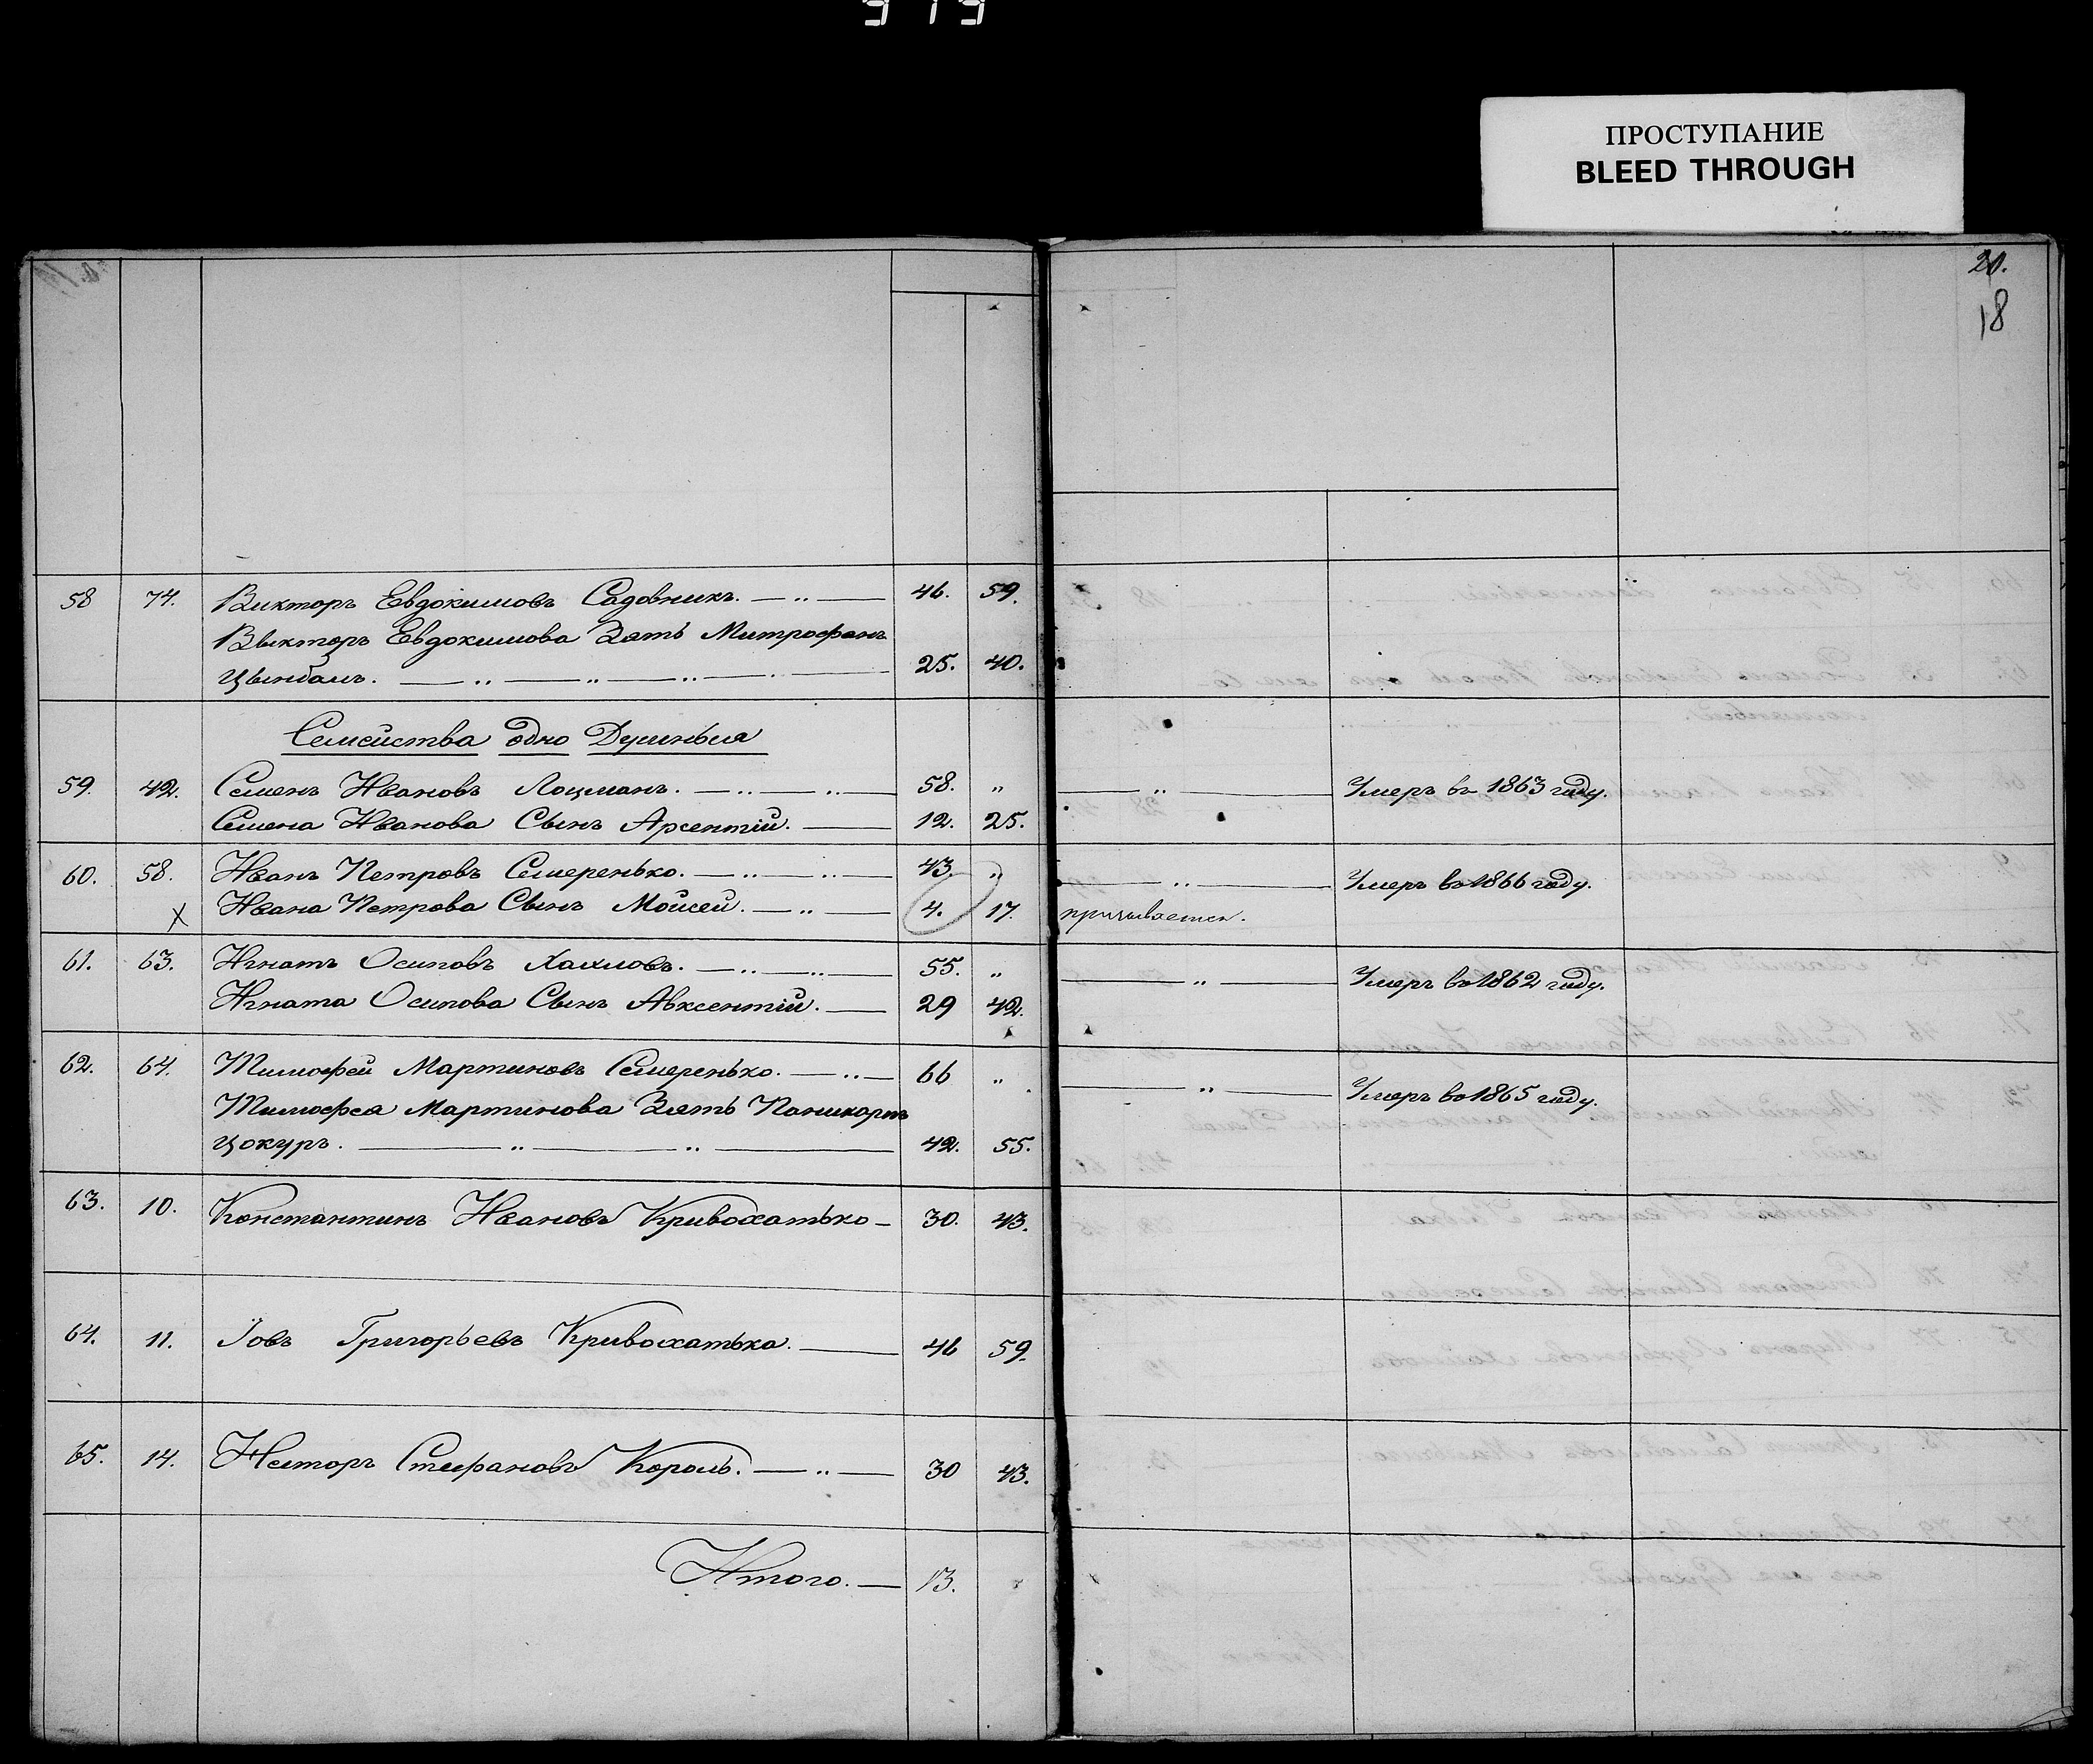 919
ПРОСТУПАНИЕ
BLEED THROUGH
20.
18
58 74. Викторъ Евдокимовъ Садовникъ. 46. 59.
Викторъ Евдокимова Зять Митрофанъ
Цымбалъ. 25. 40.
Семейства одно Душныя
59. 42. Семенъ Ивановъ Лоцманъ. 58. „ „ Умеръ въ 1863 году.
Семена Иванова Сынъ Арсентій. 12. 25.
60. 58. Иванъ Петровъ Семеренько. 43. „ „ Умеръ въ 1866 году.
X Ивана Петрова Сынъ Мойсей. 4. 17. призывается.
61. 63. Игнатъ Осиповъ Хаиловъ. 55. „ „ Умеръ въ 1862 году.
Игната Осипова Сынъ Авксентій. 29 42.
62. 64. Тимофей Мартиновъ Семеренько. 66 „ „ Умеръ въ 1865 году.
Тимофея Мартинова Зять
Цокуръ. 42. 55.
63. 10. Константинъ Ивановъ Кривохатько 30. 43.
64. 11. Іовъ Григорьевъ Кривохатька. 46 59.
65. 14. Несторъ Стефановъ Король. 30 43.
Итого. 13.